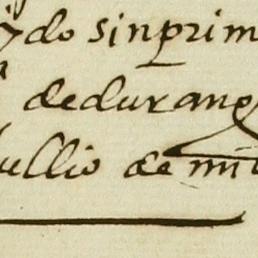 do sinprim
dedurang
ullio de mi